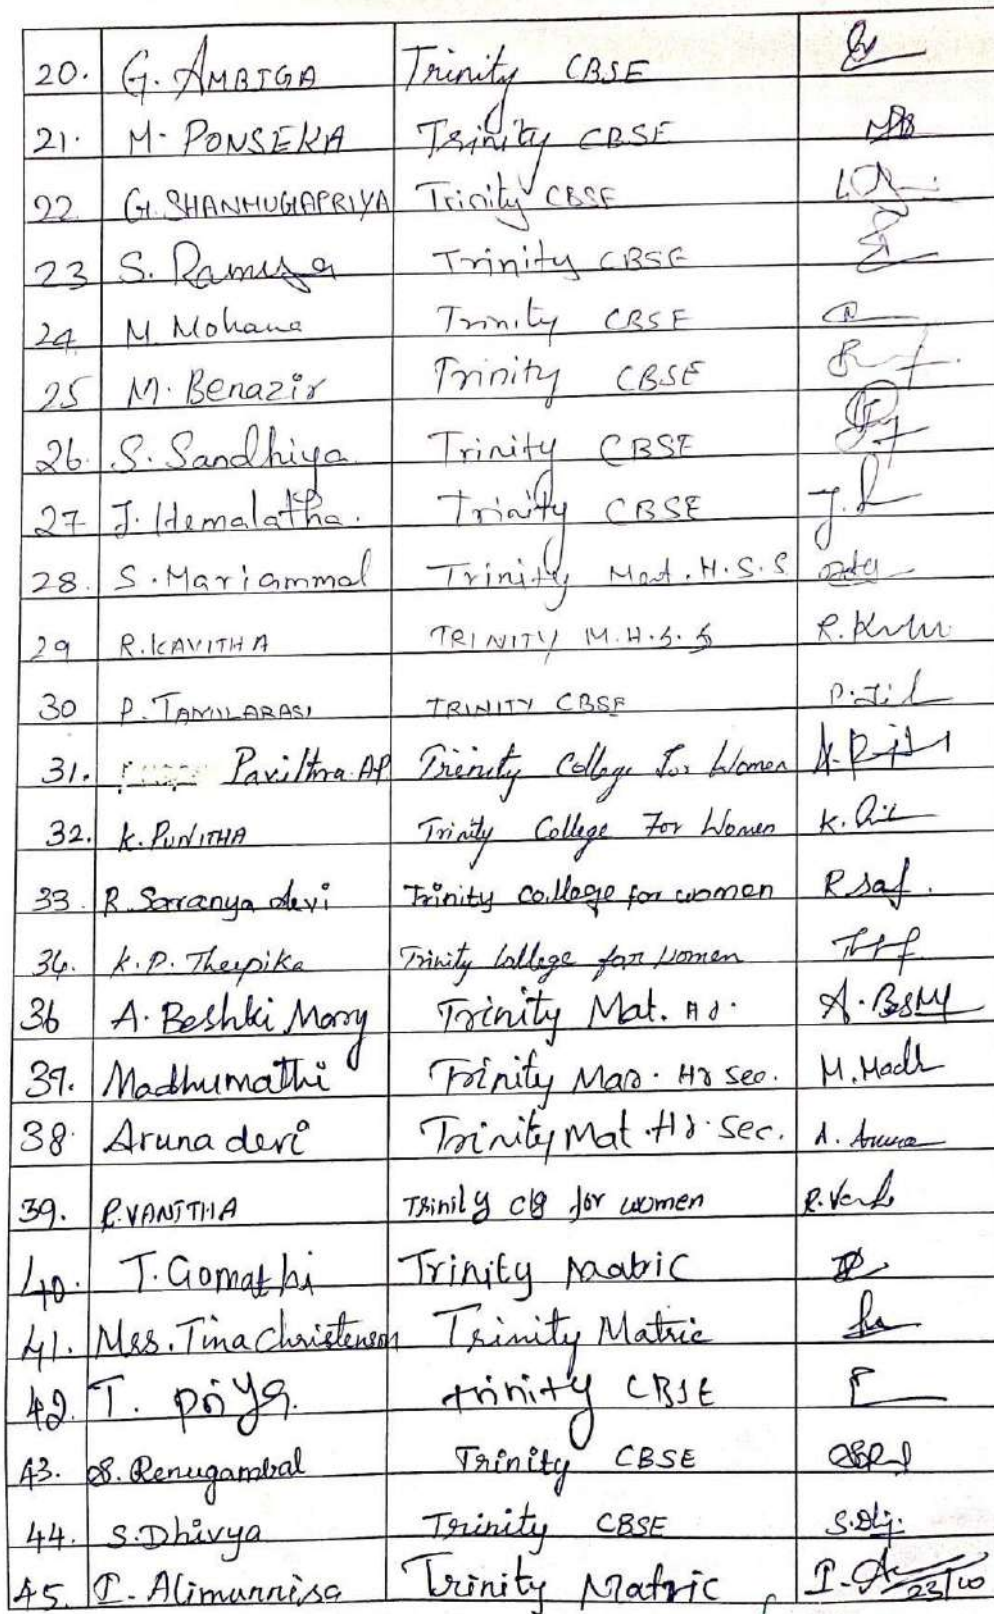 20. G. AMBIGA Trinity CBSE
21. M. PONSEKA Trinity CBSE
22 G. SHANMUGAPRIYA Trinity CBSE
23 S. Ramya Trinity CBSE
24 M. Mohana Trinity CBSE
25 M. Benazir Trinity CBSE
26. S. Sandhiya Trinity CBSE
27 J. Hemalatha. Trinity CBSE
28. S. Mariammal Trinity Mat. H.S.S
29 R. KAVITHA TRINITY M.H.S.S R. Kv
30 P. TAMILARASI TRINITY CBSE
31. Pavithra AP Trinity College for Women
32. K. PUNITHA Trinity College For Women
33. R. Sarranya devi Trinity college for women
34. K.P. Theepika Trinity College for Women
36 A. Beshki Mary Trinity Mat. Hr.
37. Madhumathi Trinity Mat. Hr Sec. M. Madh
38. Aruna devi Trinity Mat. Hr. Sec. A. Aruna
39. R. VANITHA Trinity clg for women
40. T. Gomathi Trinity Matric
41. Mrs. Tina Christenson Trinity Matric
42. T. Priya. trinity CBSE
43. S. Renugambal Trinity CBSE
44. S. Dhivya Trinity CBSE
45. I. Alimunnisa Trinity Matric 23/10